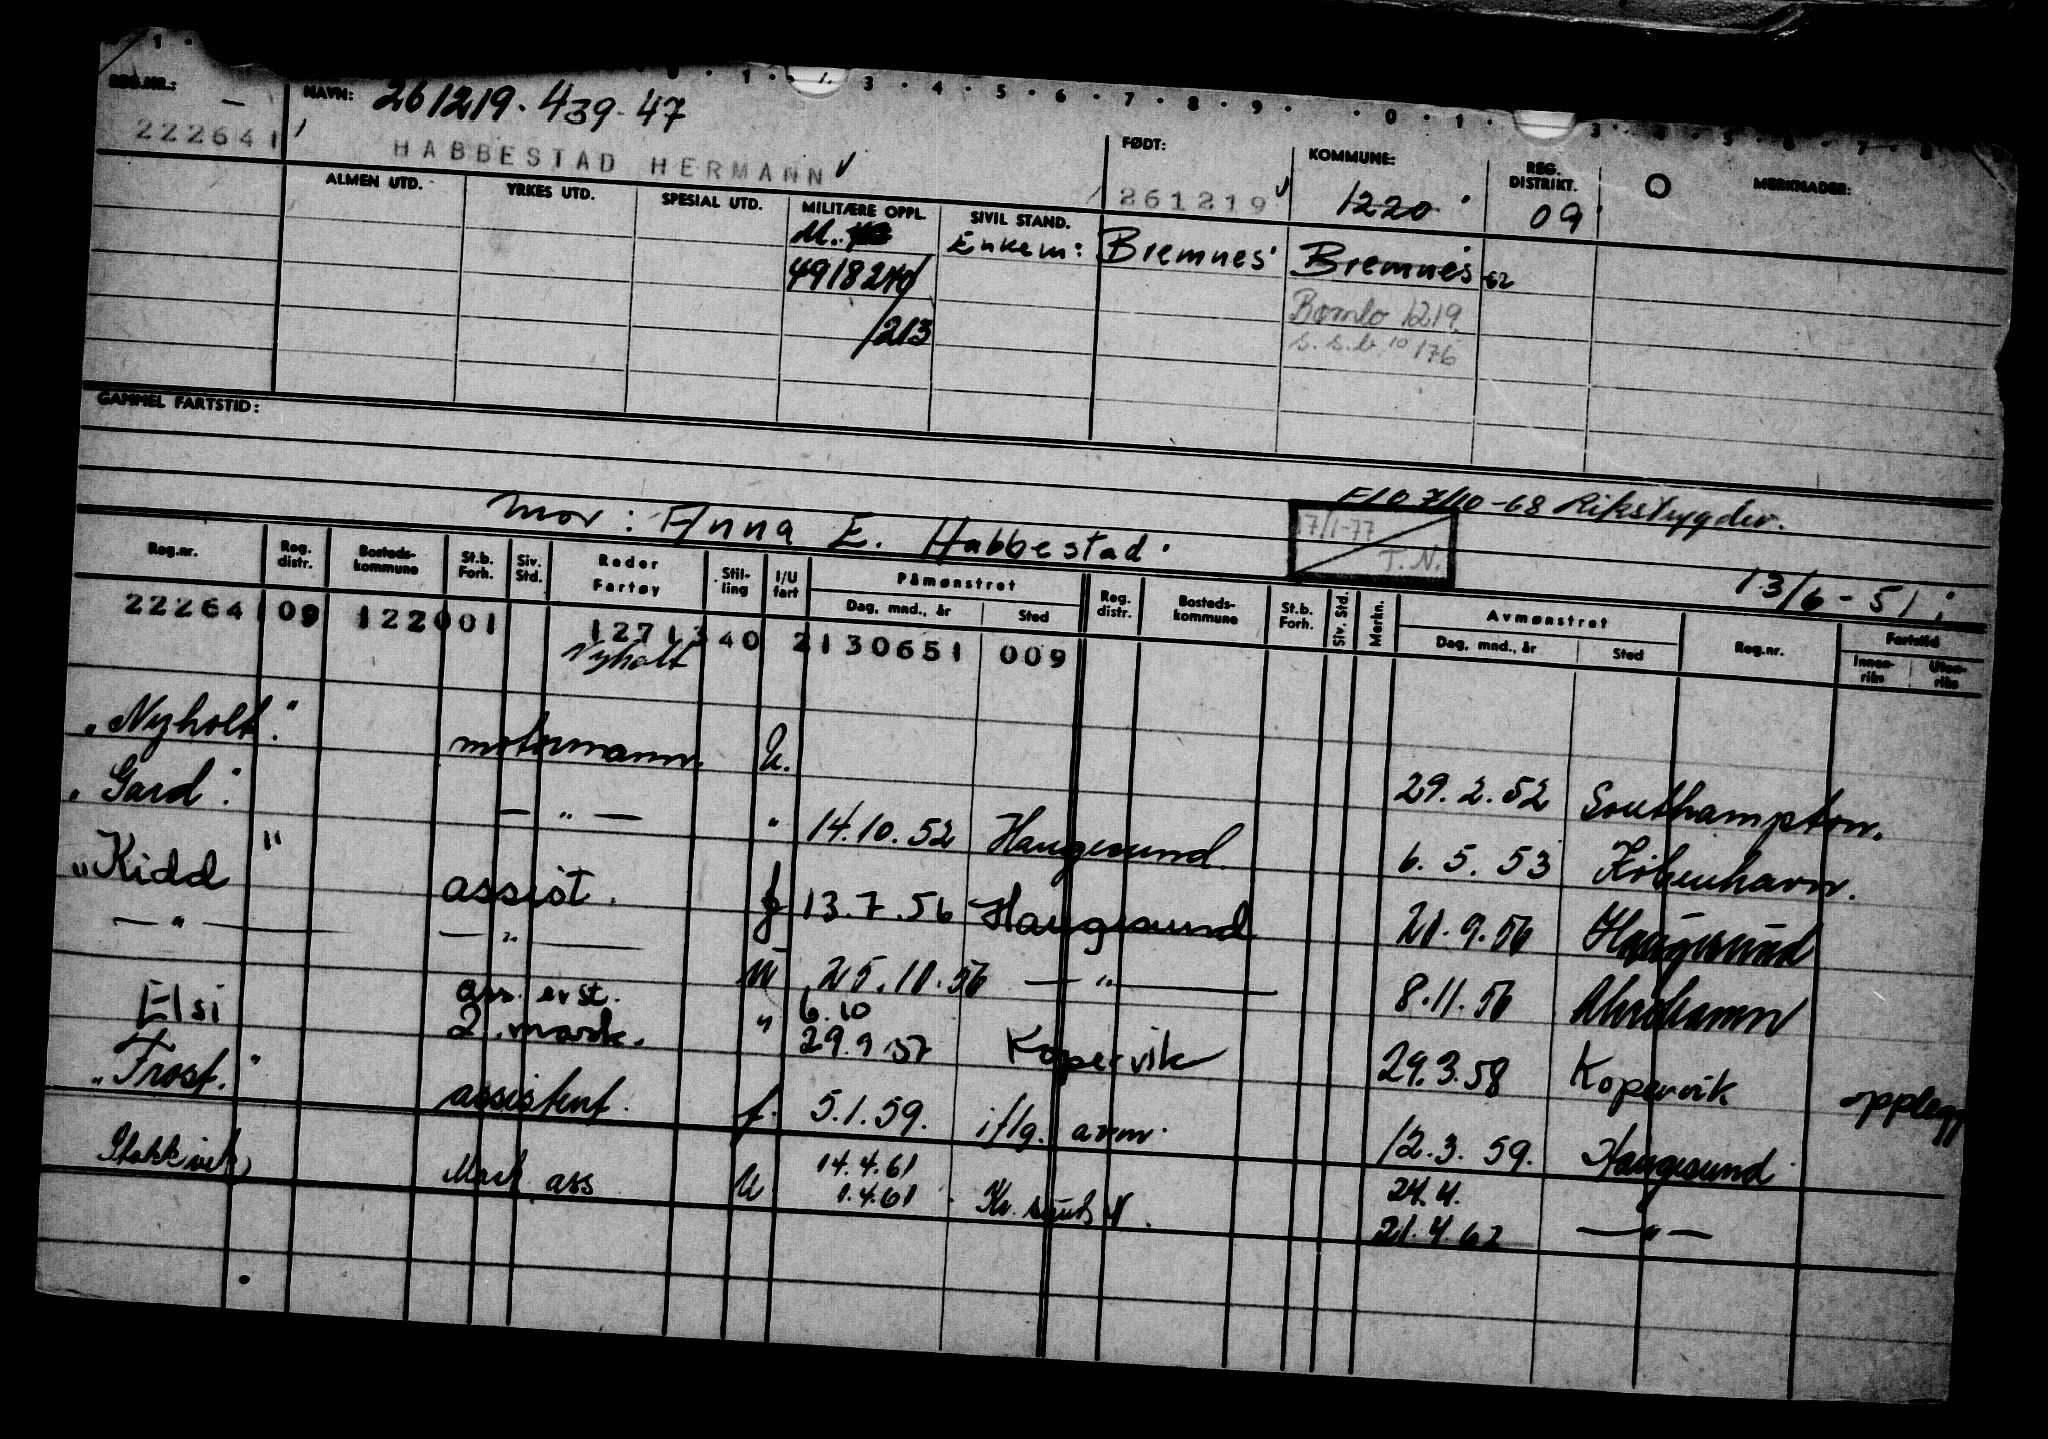 REG.NR.: NAVN: 261219.439-47
222641 HABBESTAD HERMANN
FØDT: 261219
KOMMUNE: 1220
REG. DISTRIKT. 09
MERKNADER:
ALMEN UTD. YRKES UTD. SPESIAL UTD. MILITÆRE OPPL. SIVIL STAND.
Enkem: Bremnes Bremnes 62
4918240
/213
Bømlo 1219
s.s.b. 10/76
GAMMEL FARTSTID:
7/10-68 Rikstrygdev.
Mor: Anna E. Habbestad.
17/1-77
T.N.
13/6-51
Reg.nr. Reg. distr. Bosteds-kommune St.b. Forh. Siv. Std. Reder Fartøy Stil-ling I/U fart Påmønstret Dag, mnd., år Sted Reg. distr. Bosteds-kommune St.b. Forh. Siv. Std. Merkn. Avmønstret Dag, mnd., år Sted Reg.nr. Fartstid Innen-riks Uten-riks
222641 09 122001 1271340 2130651 009
Nyholt
"Nyholt." motormann U. 29.2.52 Southampton.
"Gard". — " — " 14.10.52 Haugesund. 6.5.53 København.
"Kidd" assist. f 13.7.56 Haugesund 21.9.56 Haugesund
— " — — " — 25.10.56 — " — 8.11.56
Elsi ass. erst. 6.10
2. mask. " 29.9.57 Kopervik 29.3.58 Kopervik opplegg
"Frost." assistent. f. 5.1.59. iflg. avm. 12.3.59. Haugesund
Stokkvik Mask ass U 14.4.61 24.4.
1.4.61 Kr. sund N. 21.4.62 — " —